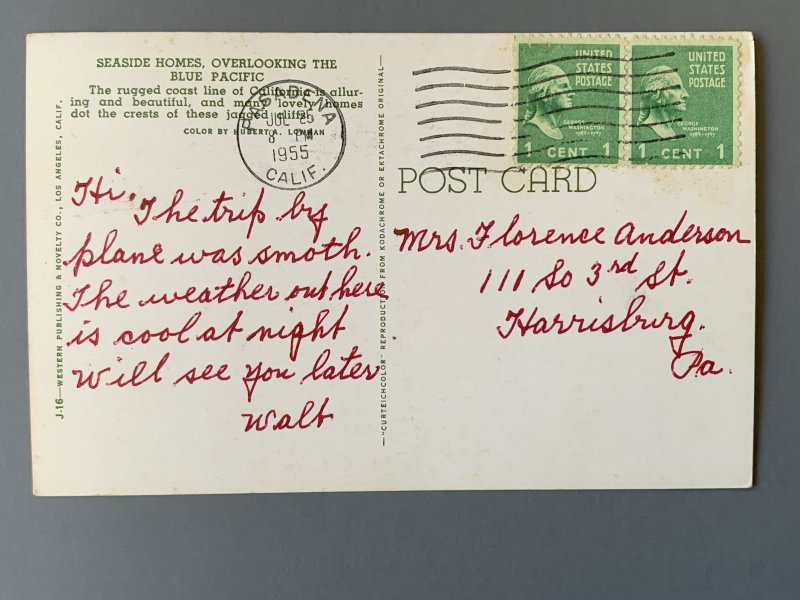 SEASIDE HOMES, OVERLOOKING THE
BLUE PACIFIC
The rugged coast line of California is allur-
ing and beautiful, and many lovely homes
dot the crests of these jagged cliffs.
COLOR BY HUBERT A. LOWMAN
PASADENA
JUL 25
8 PM
1955
CALIF.
Hi,
The trip by
plane was smoth.
The weather out here
is cool at night
Will see you later
Walt
J-16—WESTERN PUBLISHING & NOVELTY CO., LOS ANGELES, CALIF.
—"CURTEICHCOLOR" REPRODUCTION FROM KODACHROME OR EKTACHROME ORIGINAL—
UNITED
STATES
POSTAGE
GEORGE
WASHINGTON
1789-1797
1 CENT 1
UNITED
STATES
POSTAGE
GEORGE
WASHINGTON
1789-1797
1 CENT 1
POST CARD
Mrs. Florence Anderson
111 So 3rd St.
Harrisburg.
Pa.